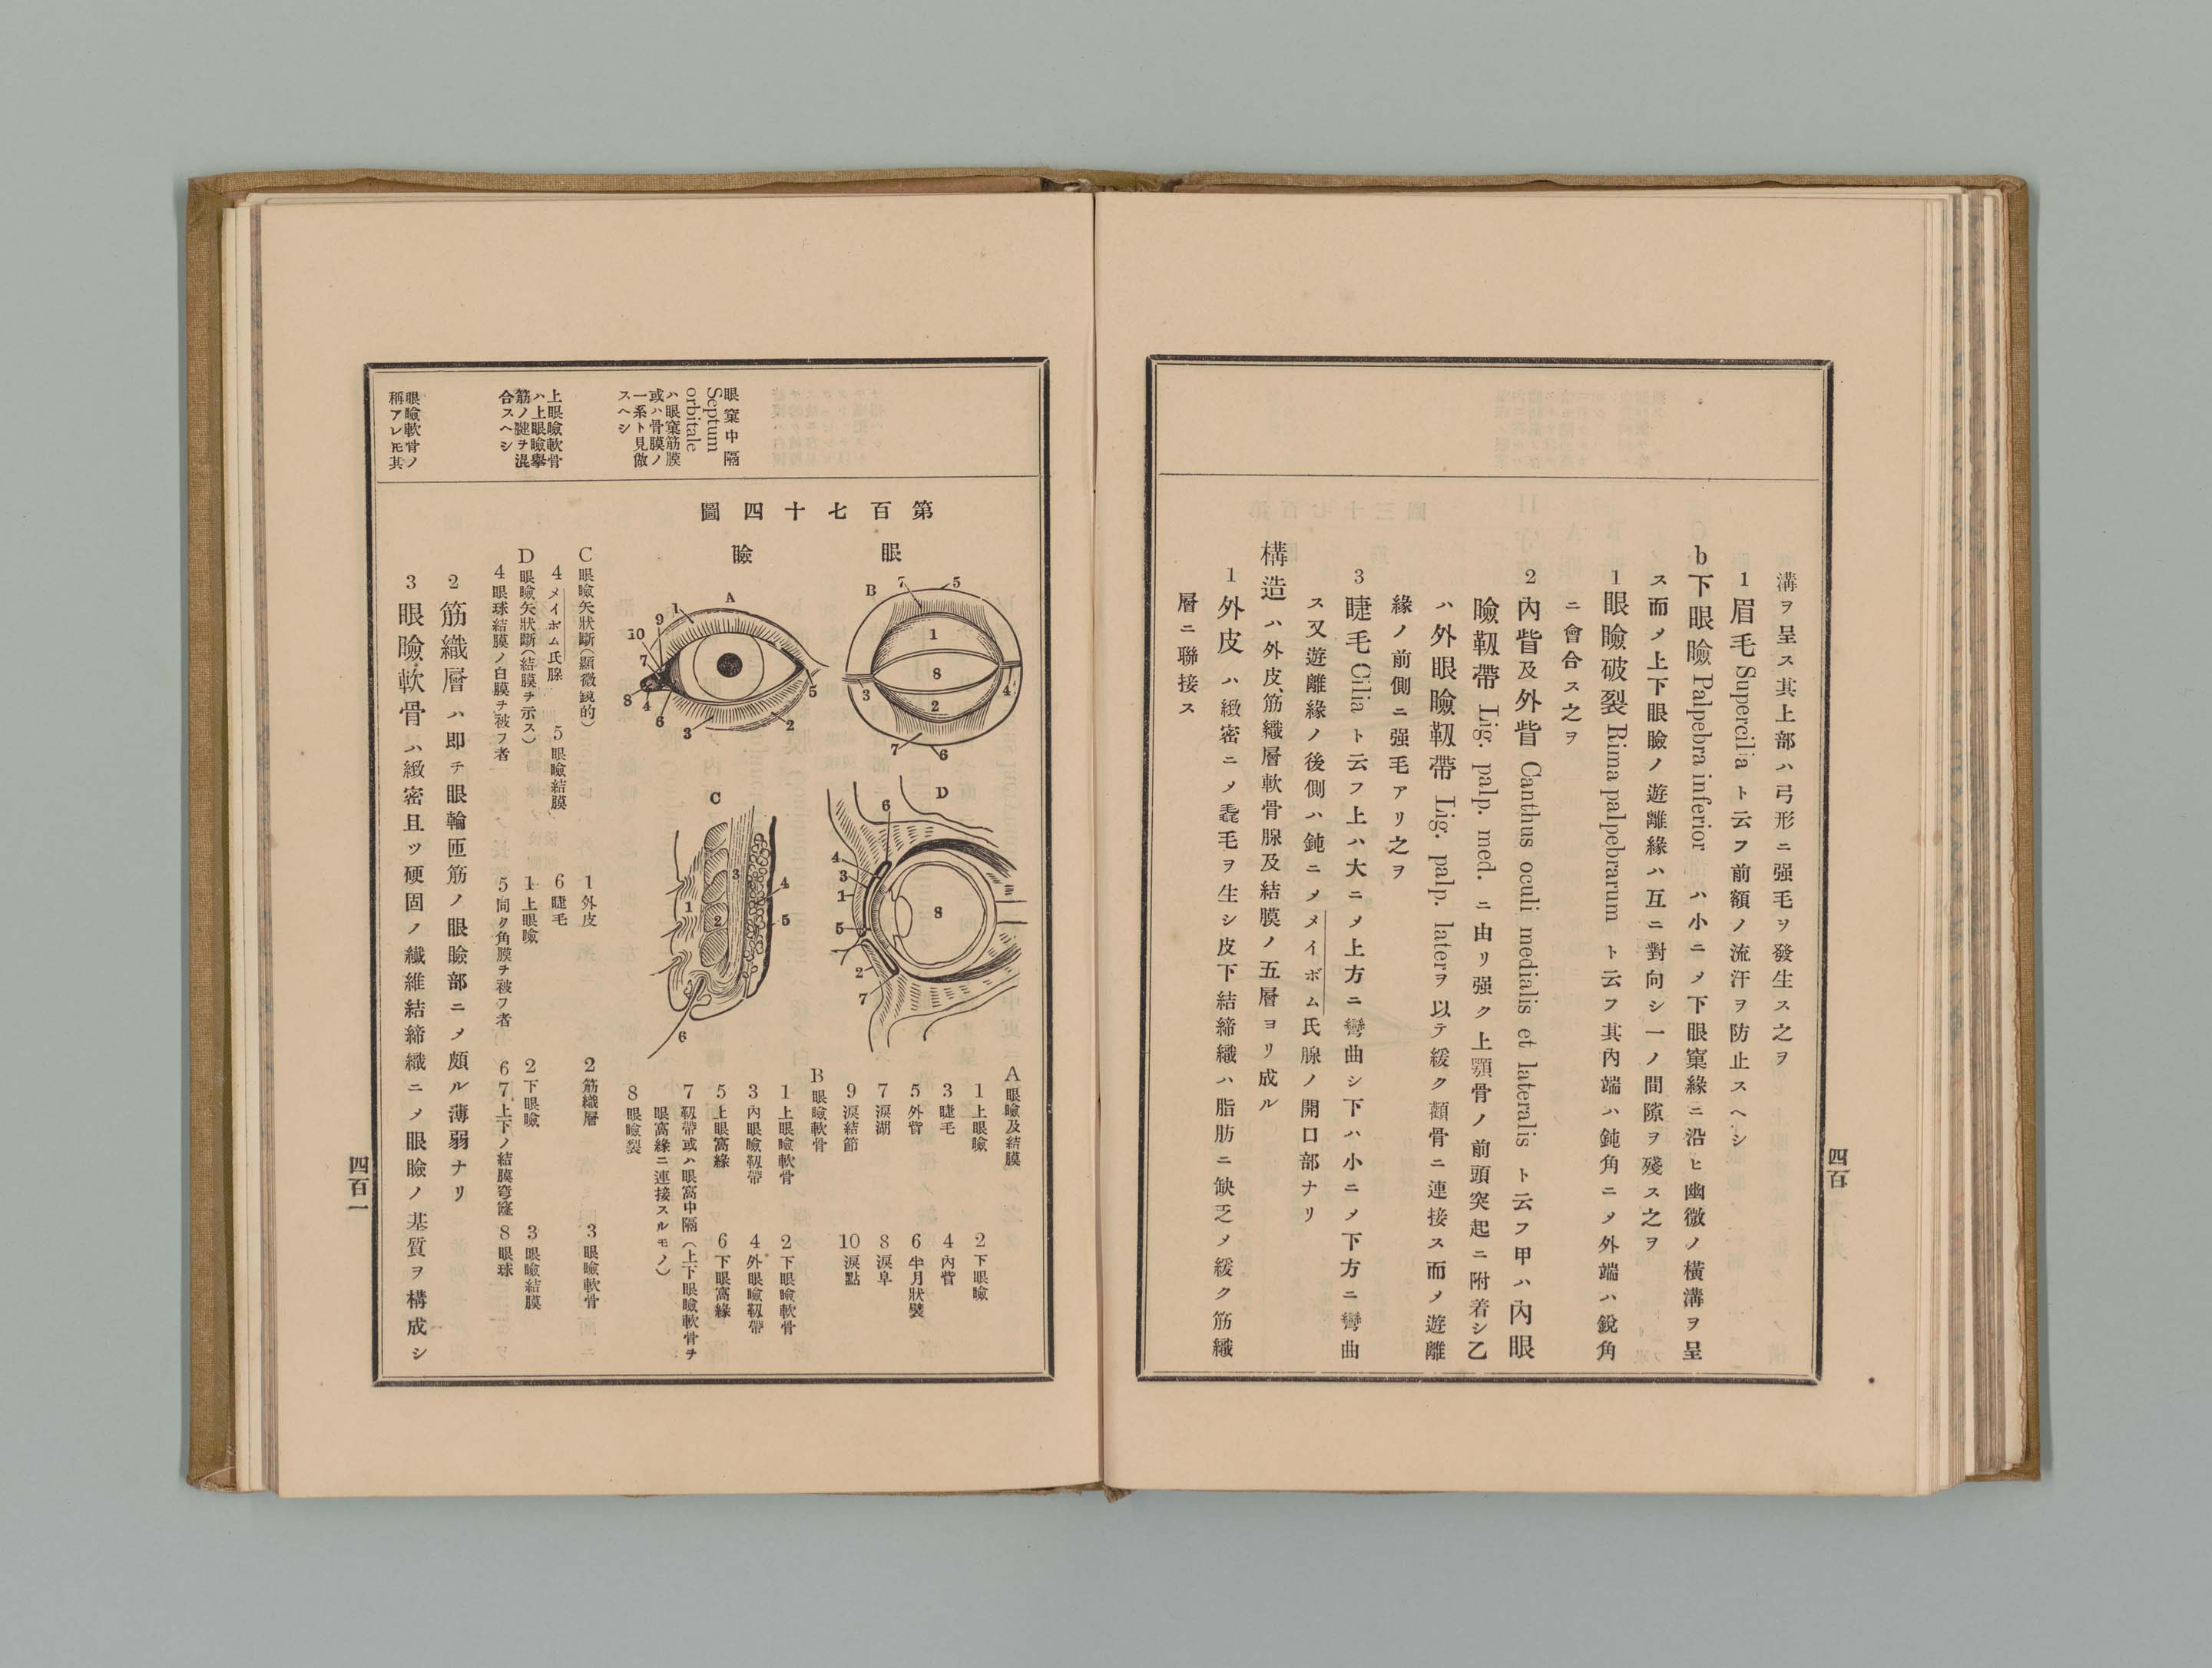 溝ヲ呈ス其上部ハ弓形ニ强毛ヲ發生ス之ヲ
1 眉毛 Supercilia ト云フ前額ノ流汗ヲ防止スヘシ
b 下眼瞼 Palpebra inferior ハ小ニメ下眼窠緣ニ沿ヒ幽微ノ橫溝ヲ呈
ス而メ上下眼瞼ノ遊離緣ハ互ニ對向シ一ノ間隙ヲ殘ス之ヲ
1 眼瞼破裂 Rima palpebrarum ト云フ其內端ハ鈍角ニメ外端ハ銳角
ニ會合ス之ヲ
2 內眥及外眥 Canthus oculi medialis et lateralis ト云フ甲ハ內眼
瞼靱帶 Lig. palp. med. ニ由リ强ク上顎骨ノ前頭突起ニ附着シ乙
ハ外眼瞼靱帶 Lig. palp. later ヲ以テ緩ク顴骨ニ連接ス而メ遊離
緣ノ前側ニ强毛アリ之ヲ
3 睫毛 Cilia ト云フ上ハ大ニメ上方ニ彎曲シ下ハ小ニメ下方ニ彎曲
ス又遊離緣ノ後側ハ鈍ニメメイボム氏腺ノ開口部ナリ
構造 ハ外皮、筋織層軟骨腺及結膜ノ五層ヨリ成ル
1 外皮 ハ緻密ニメ毳毛ヲ生シ皮下結締織ハ脂肪ニ缺乏メ緩ク筋織
層ニ聯接ス
四百
眼窠中隔
Septum
orbitale
ハ眼窠筋膜
或ハ骨膜ノ
一系ト見做
スヘシ
上眼瞼軟骨
ハ上眼瞼擧
筋ノ腱ヲ混
合スヘシ
眼瞼軟骨ノ
稱アレ𪜈其
第百七十四圖
眼
瞼
A
1
2
3
4
5
6
7
8
9
10
B
1
2
3
4
5
6
7
7
8
C
1
2
3
4
5
6
D
1
2
3
4
5
6
7
8
A 眼瞼及結膜
1 上眼瞼 2 下眼瞼
3 睫毛 4 內眥
5 外眥 6 半月狀襞
7 淚湖 8 淚阜
9 淚結節 10 淚點
B 眼瞼軟骨
1 上眼瞼軟骨 2 下眼瞼軟骨
3 內眼瞼靱帶 4 外眼瞼靱帶
5 上眼窩緣 6 下眼窩緣
7 靱帶或ハ眼窩中隔(上下眼瞼軟骨ヲ
眼窩緣ニ連接スルモノ)
8 眼瞼裂
C 眼瞼矢狀斷(顯微鏡的) 1 外皮 2 筋織層 3 眼瞼軟骨
4 メイボム氏腺 5 眼瞼結膜 6 睫毛
D 眼瞼矢狀斷(結膜ヲ示ス) 1 上眼瞼 2 下眼瞼 3 眼瞼結膜
4 眼球結膜ノ白膜ヲ被フ者 5 同ク角膜ヲ被フ者 6 7 上下ノ結膜穹窿 8 眼球
2 筋織層 ハ即チ眼輪匝筋ノ眼瞼部ニメ頗ル薄弱ナリ
3 眼瞼軟骨 ハ緻密且ツ硬固ノ纖維結締織ニメ眼瞼ノ基質ヲ構成シ
四百一